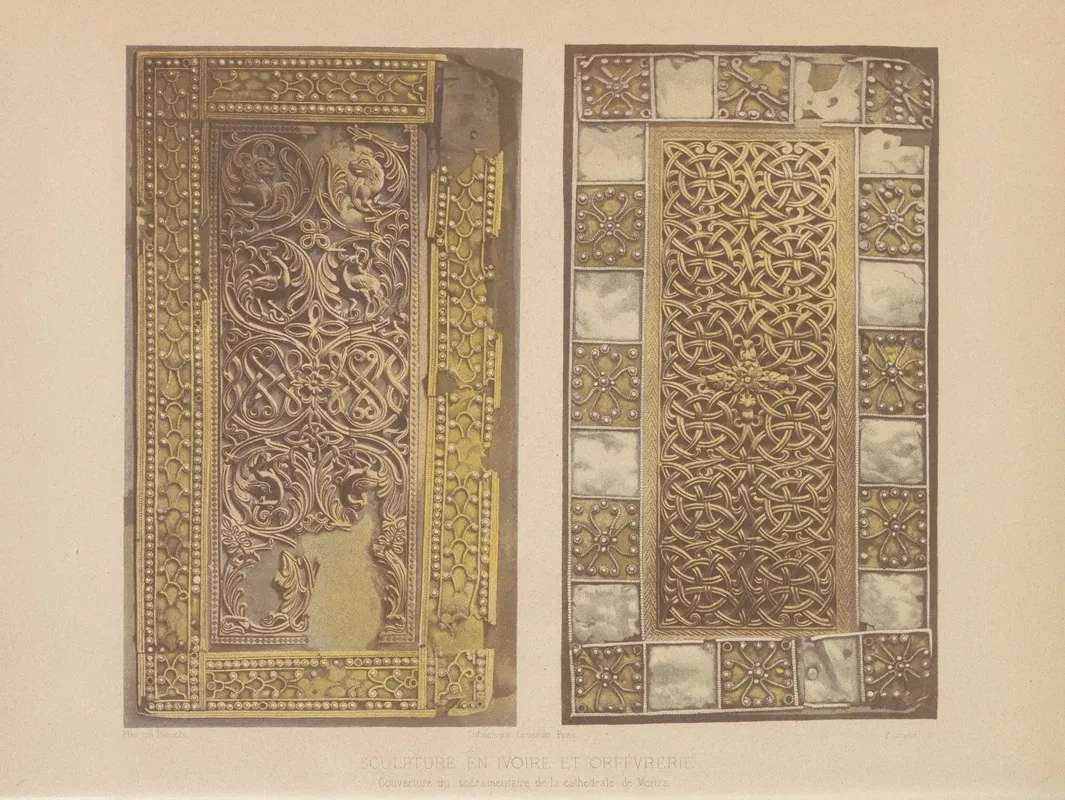 Lithochromie Lemercier, Paris.
SCULPTURE EN IVOIRE ET ORFÉVRERIE.
Couverture du sacramentaire de la cathédrale de Monza.